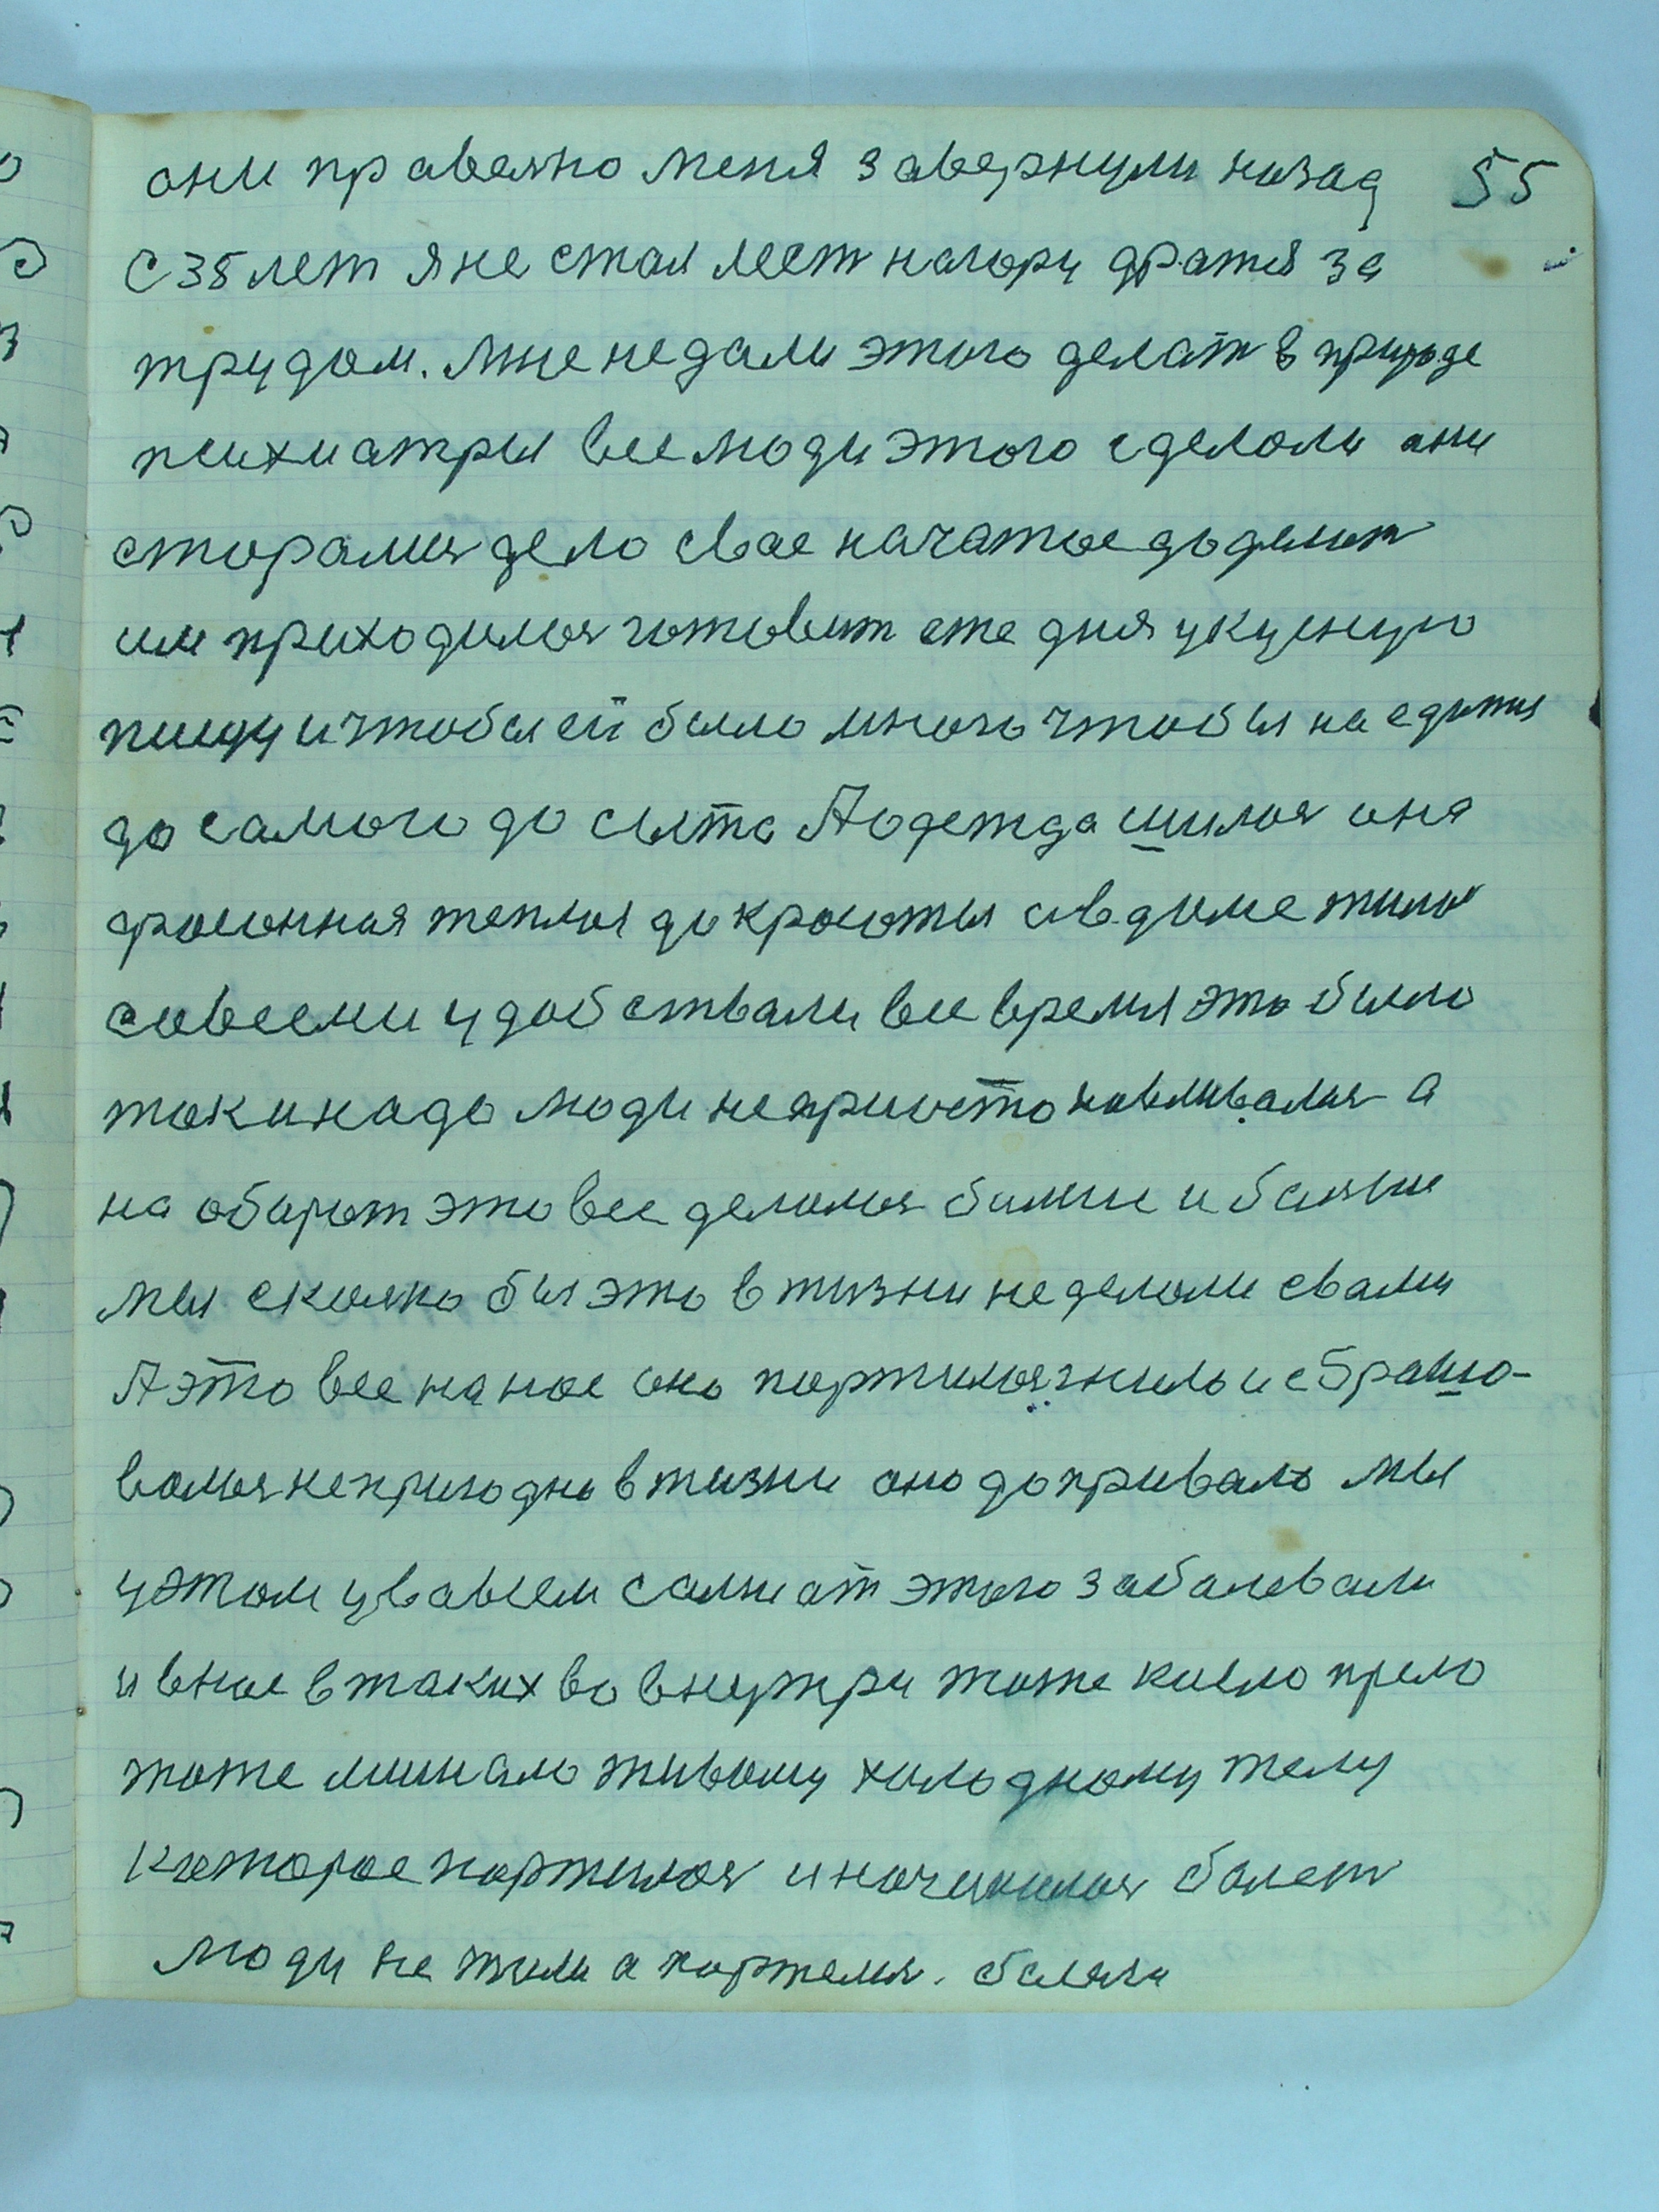 они правельно меня завернули назад 55
с 35 лет я не стал лест нагору дратя за
трудом. Мне недали этого делат в природе
психиатры вее люди этого сделоли они
сторалися дело свае начатое доделит
им приходилося готовит сте дня укусную
пищу и чтобы ей было много чтобы на едатся
до самого до сыта А одежда шилося она
фасонная теплая до красоты а в доме жило
со всеми удобствами вее время это было
так и надо люди не приостонавливалися а
на оборот это вее делалося болше иболше
мы сколко бы это в жизни не делали свами
А это вее на нас оно портилося гнило и сброшо-
валося не пригодно в жизни оно допривало мы
у этом у во всем сами от этого заболевали
и в нас в таких во внутри тоже кисло прело
тоже мишало живому холодному телу
которое портилося и начинилося болет
люди не жили а портелися. болячи